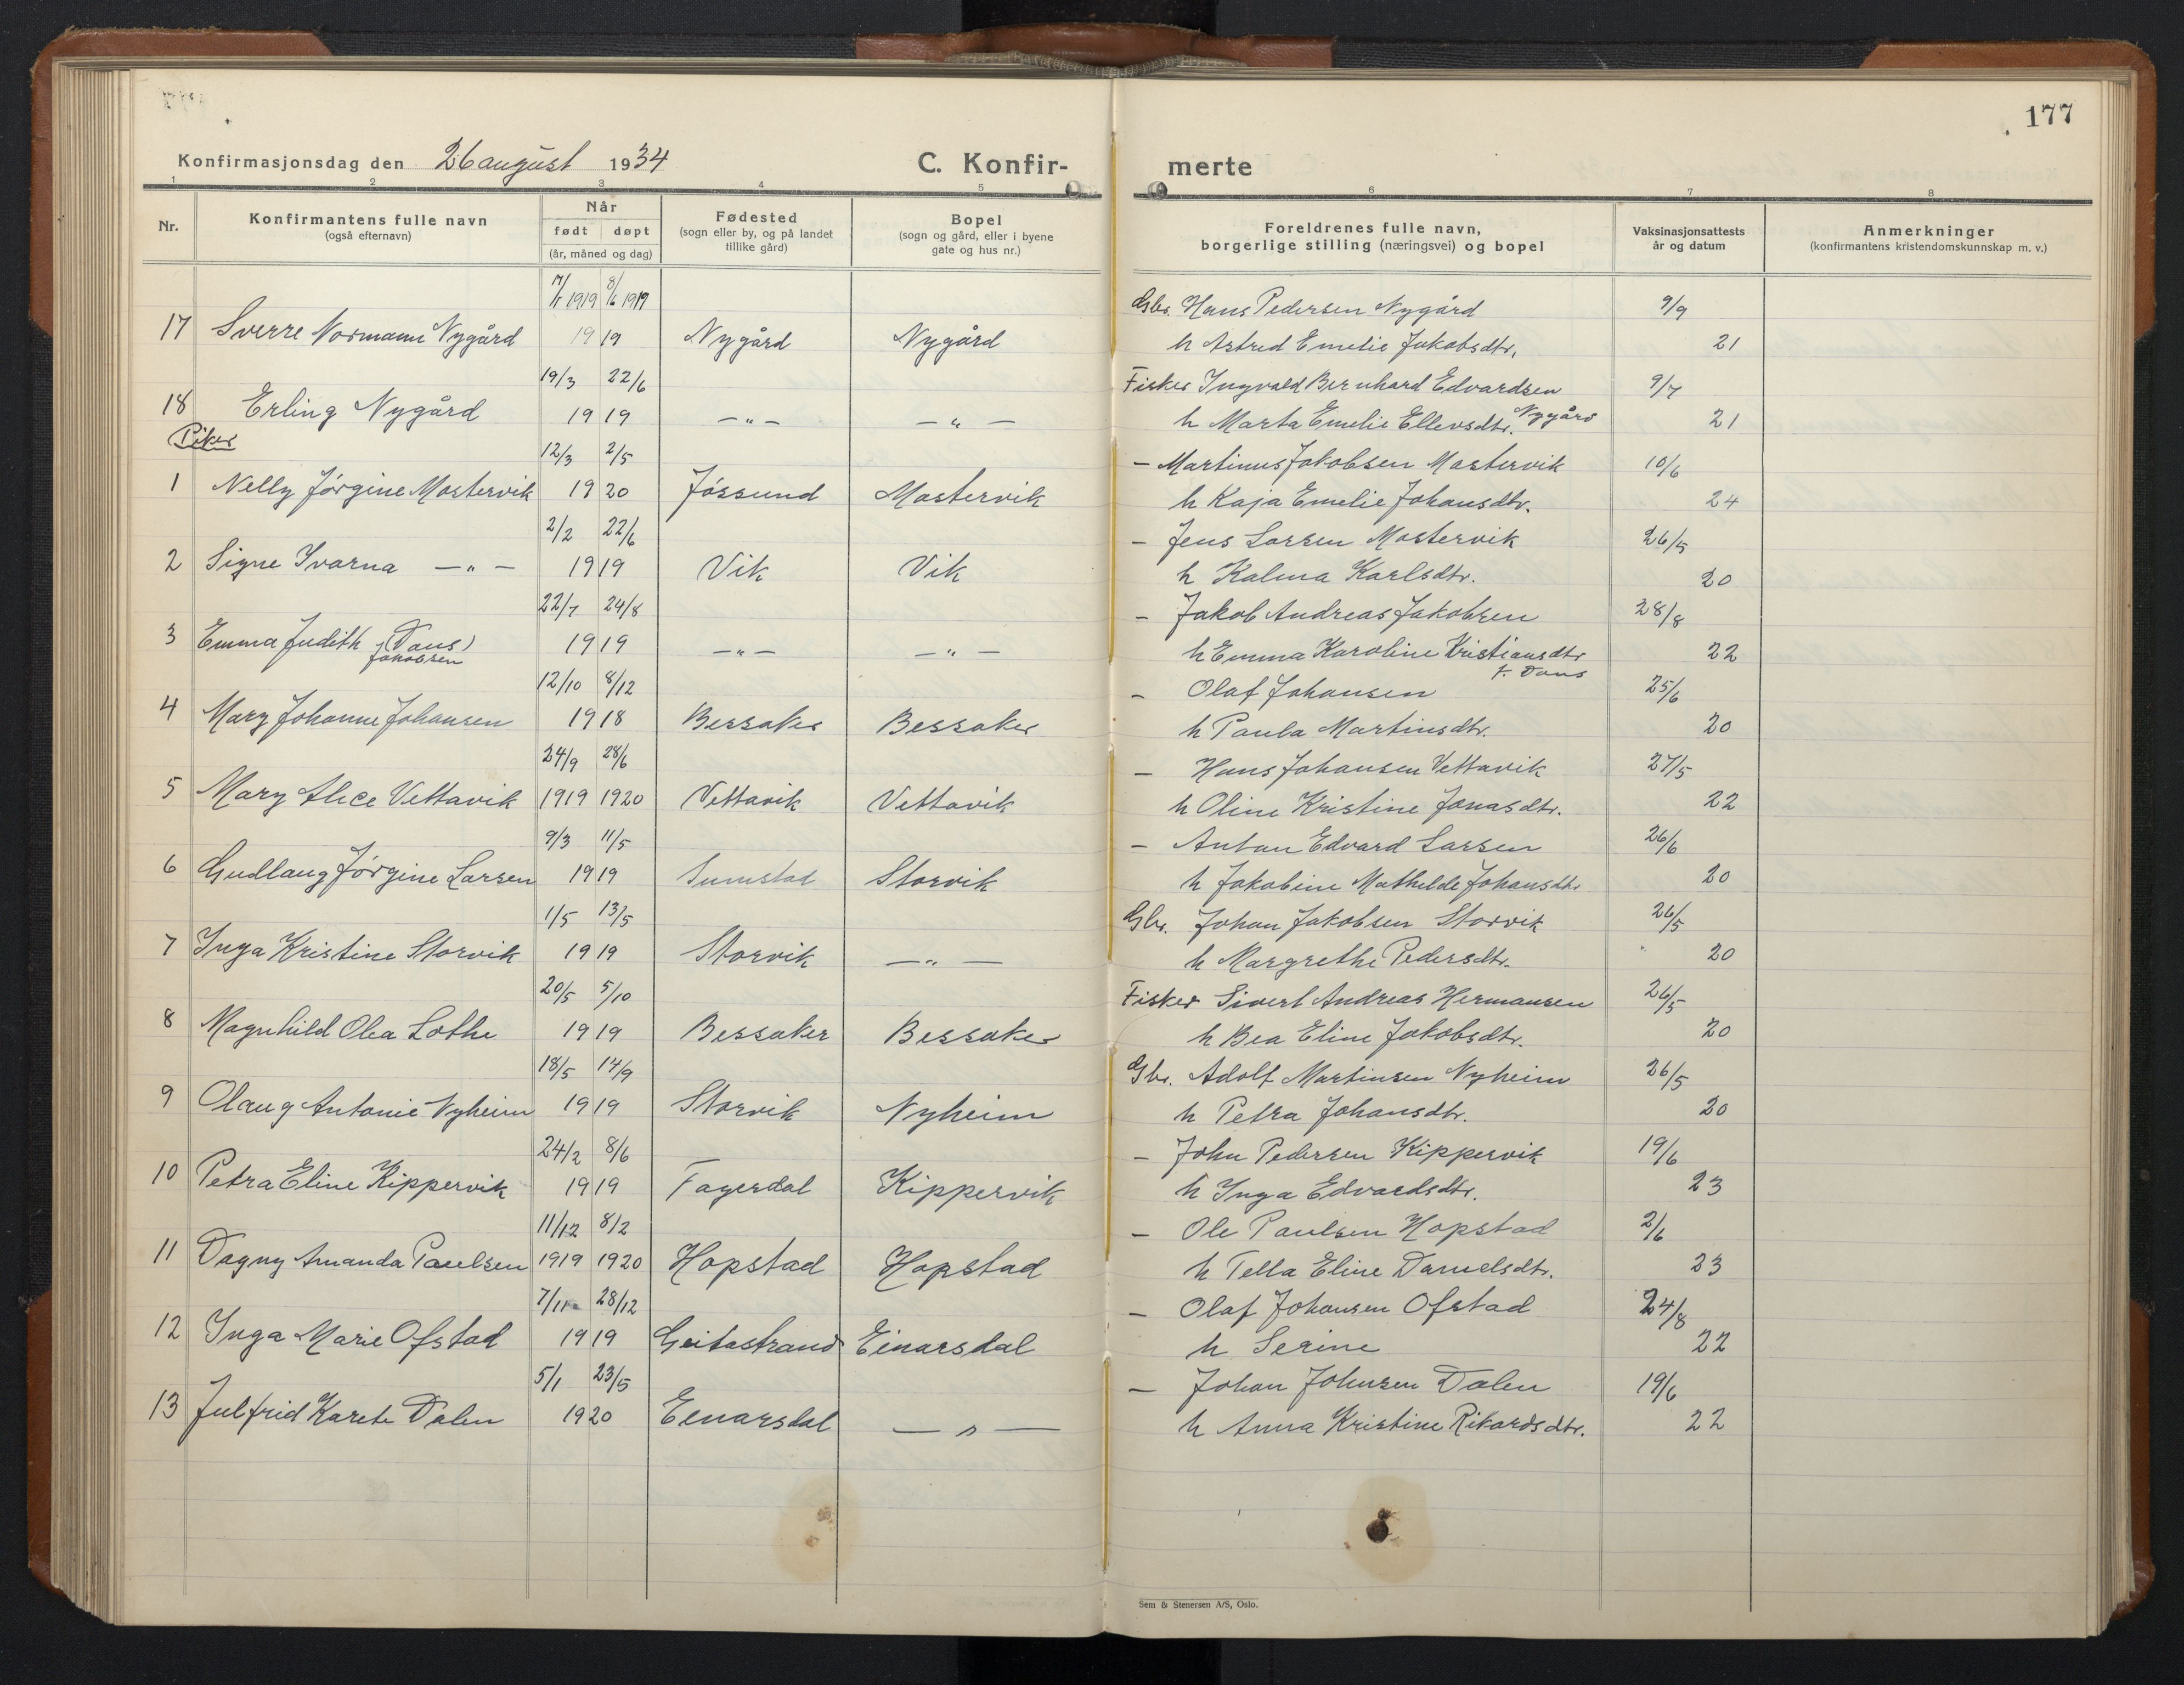 177
Konfirmasjonsdag den 26 august 1934 C. Konfir- merte
1 2 3 4 5 6 7 8
Nr. Konfirmantens fulle navn (også efternavn) Når født døpt (år, måned og dag) Fødested (sogn eller by, og på landet tillike gård) Bopel (sogn og gård, eller i byene gate og hus nr.) Foreldrenes fulle navn, borgerlige stilling (næringsvei) og bopel Vaksinasjonsattests år og datum Anmerkninger (konfirmantens kristendomskunnskap m. v.)
1919 8/6 1919 Gbr. Hans Pedersen Nygård 9/9
17 Sverre Normann Nygård 1919 Nygård Nygård h Astrid Emelie Jakobsdtr. 21
19/3 22/6 Fisker Ingvald Bernhard Edvardsen 9/7
18 Erling Nygård 1919 — " — — " — h Marta Emelie Ellevsdtr. Nygård 21
Piker
12/3 2/5 — Martinus Jakobsen Mastervik 10/6
1 Nelly Jørgine Mastervik 1920 Jøssund Mastervik h Kaja Emelie Johansdtr. 24
2/2 22/6 — Jens Larsen Mastervik 26/5
2 Signe Ivarna — " — 1919 Vik Vik h Kalma Karlsdtr. 20
22/7 24/8 — Jakob Andreas Jakobsen 28/8
3 Emma Judith (Daus) Jakobsen 1919 — " — — " — h Emma Karoline Kristiansdtr 22
f. Daus
12/10 8/12 — Olaf Johansen 25/6
4 Mary Johanne Johansen 1918 Bessaker Bessaker h Paula Martinsdtr. 20
24/9 28/6 — Hans Johansen Vettavik 27/5
5 Mary Alice Vettavik 1919 1920 Vettavik Vettavik h Oline Kristine Jonasdtr. 22
9/3 11/5 — Anton Edvard Larsen 26/6
6 Gudlaug Jørgine Larsen 1919 Sumstad Storvik h Jakobine Mathilde Johansdtr 20
1/5 13/5 Gbr. Johan Jakobsen Storvik 26/5
7 Inga Kristine Storvik 1919 Storvik — " — h Margrethe Pedersdtr. 20
20/5 5/10 Fisker Sivert Andreas Hermansen 26/5
8 Magnhild Olea Lothe 1919 Bessaker Bessaker h Bea Eline Jakobsdtr. 20
18/5 14/9 Gbr. Adolf Martinsen Nyheim 26/5
9 Olaug Antonie Nyheim 1919 Storvik Nyheim h Petra Johansdtr. 20
24/2 8/6 — John Pedersen Kippervik 19/6
10 Petra Eline Kippervik 1919 Fagerdal Kippervik h Inga Edvardsdtr. 23
11/12 8/2 — Ole Paulsen Hopstad 2/6
11 Dagny Amanda Paulsen 1919 1920 Hopstad Hopstad h Tella Eline Danielsdtr. 23
7/11 28/12 — Olaf Johansen Ofstad 24/8
12 Inga Marie Ofstad 1919 Geitastrand Einarsdal h Serine 22
5/1 23/5 — Johan Johnsen Dalen 19/6
13 Julfrid Karete Dalen 1920 Einarsdal — " — h Anna Kristine Rikardsdtr. 22
Sem & Stenersen A/S, Oslo.